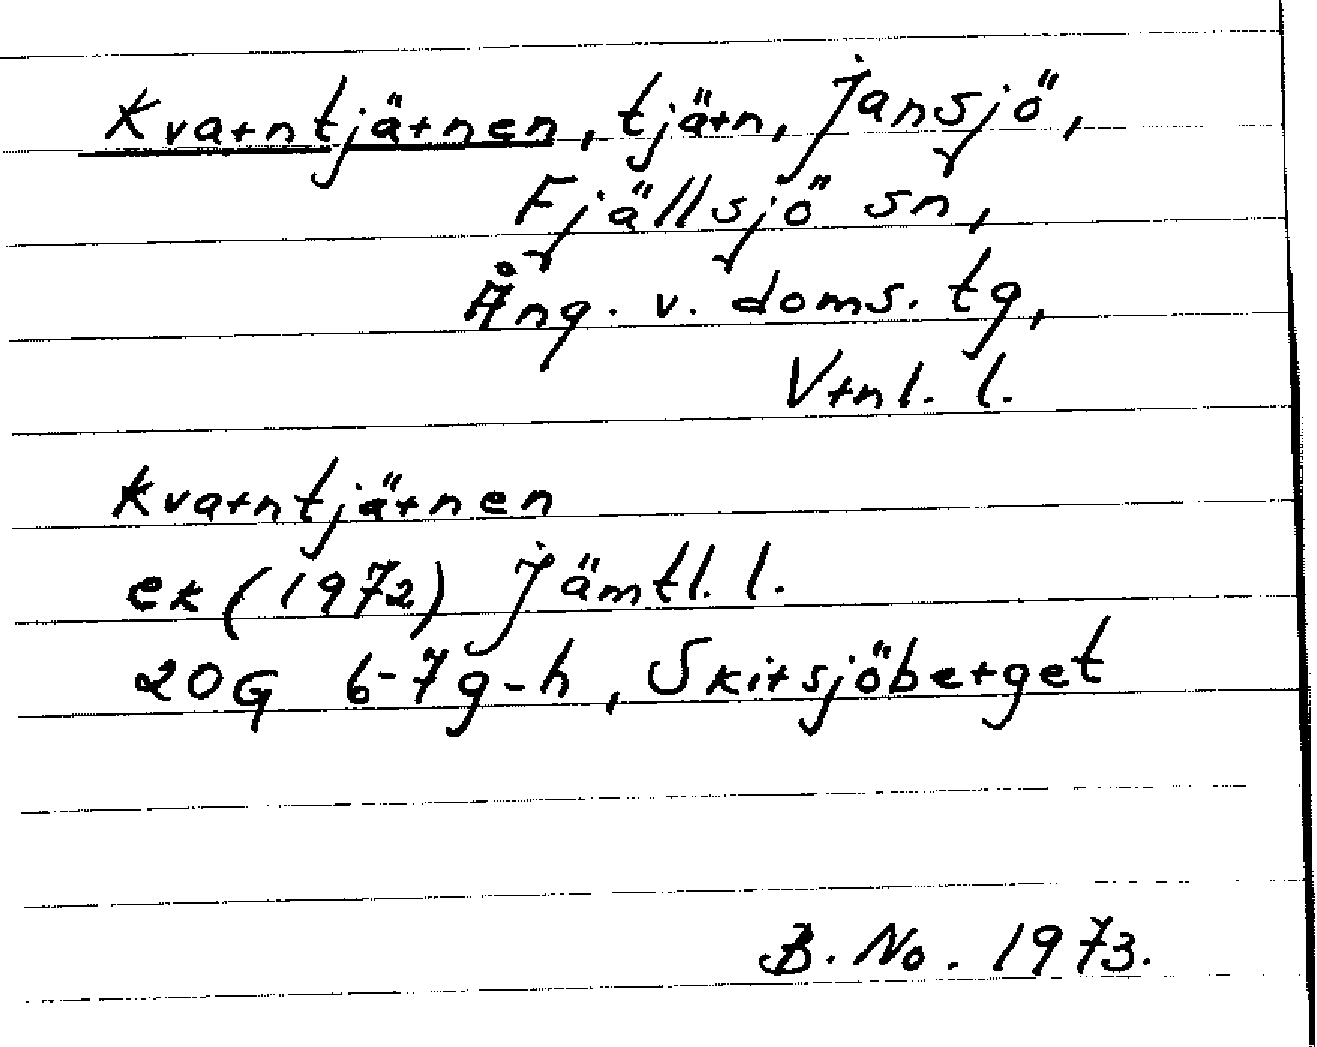 Kvarntjärnen, tjärn, Jansjö,
Fjällsjö sn,
Ång. v. doms. tg,
Vrnl. l.
Kvarntjärnen
ek (1972) Jämtl. l.
20G 6-7g-h, Skirsjöberget
B. No. 1973.